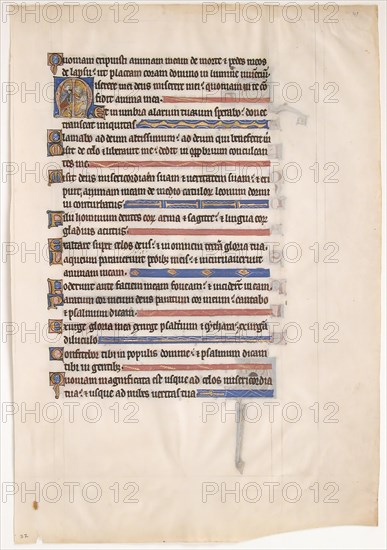 Quoniam eripuisti animam meam de morte & pedes meos
de lapsu: ut placeam coram domino in lumine
Miserere mei deus miserere mei: quoniam in te con
fidit anima mea.
Et in umbra alarum tuarum sperabo: donec
transeat iniquitas.
Clamabo ad deum altissimum: ad deum qui
Misit de celo & liberavit me: dedit in
tes me.
Misit deus misericordiam suam & veritatem suam &
animam meam de medio catulor leonum dormi
vi conturbatus.
Filii hominum dentes eor arma & sagitte: & lingua eor
gladius acutus.
Exaltare super celos deus: & in omnem terra gloria tua.
pedibz meis: & incurvaverunt
animam meam.
Foderunt ante faciem meam foveam: & inciderunt in eam.
Paratum cor meum deus paratum cor meum: cantabo
& psalmum dicam.
Exurge gloria mea exurge psalterium & cythara: exurgam
diluculo.
Confitebor tibi in populis domine: & psalmum dicam
tibi in gentibz.
Quoniam magnificata est usque ad celos misericordia
tua: & usque ad nubes veritas tua.
PHOTO 12